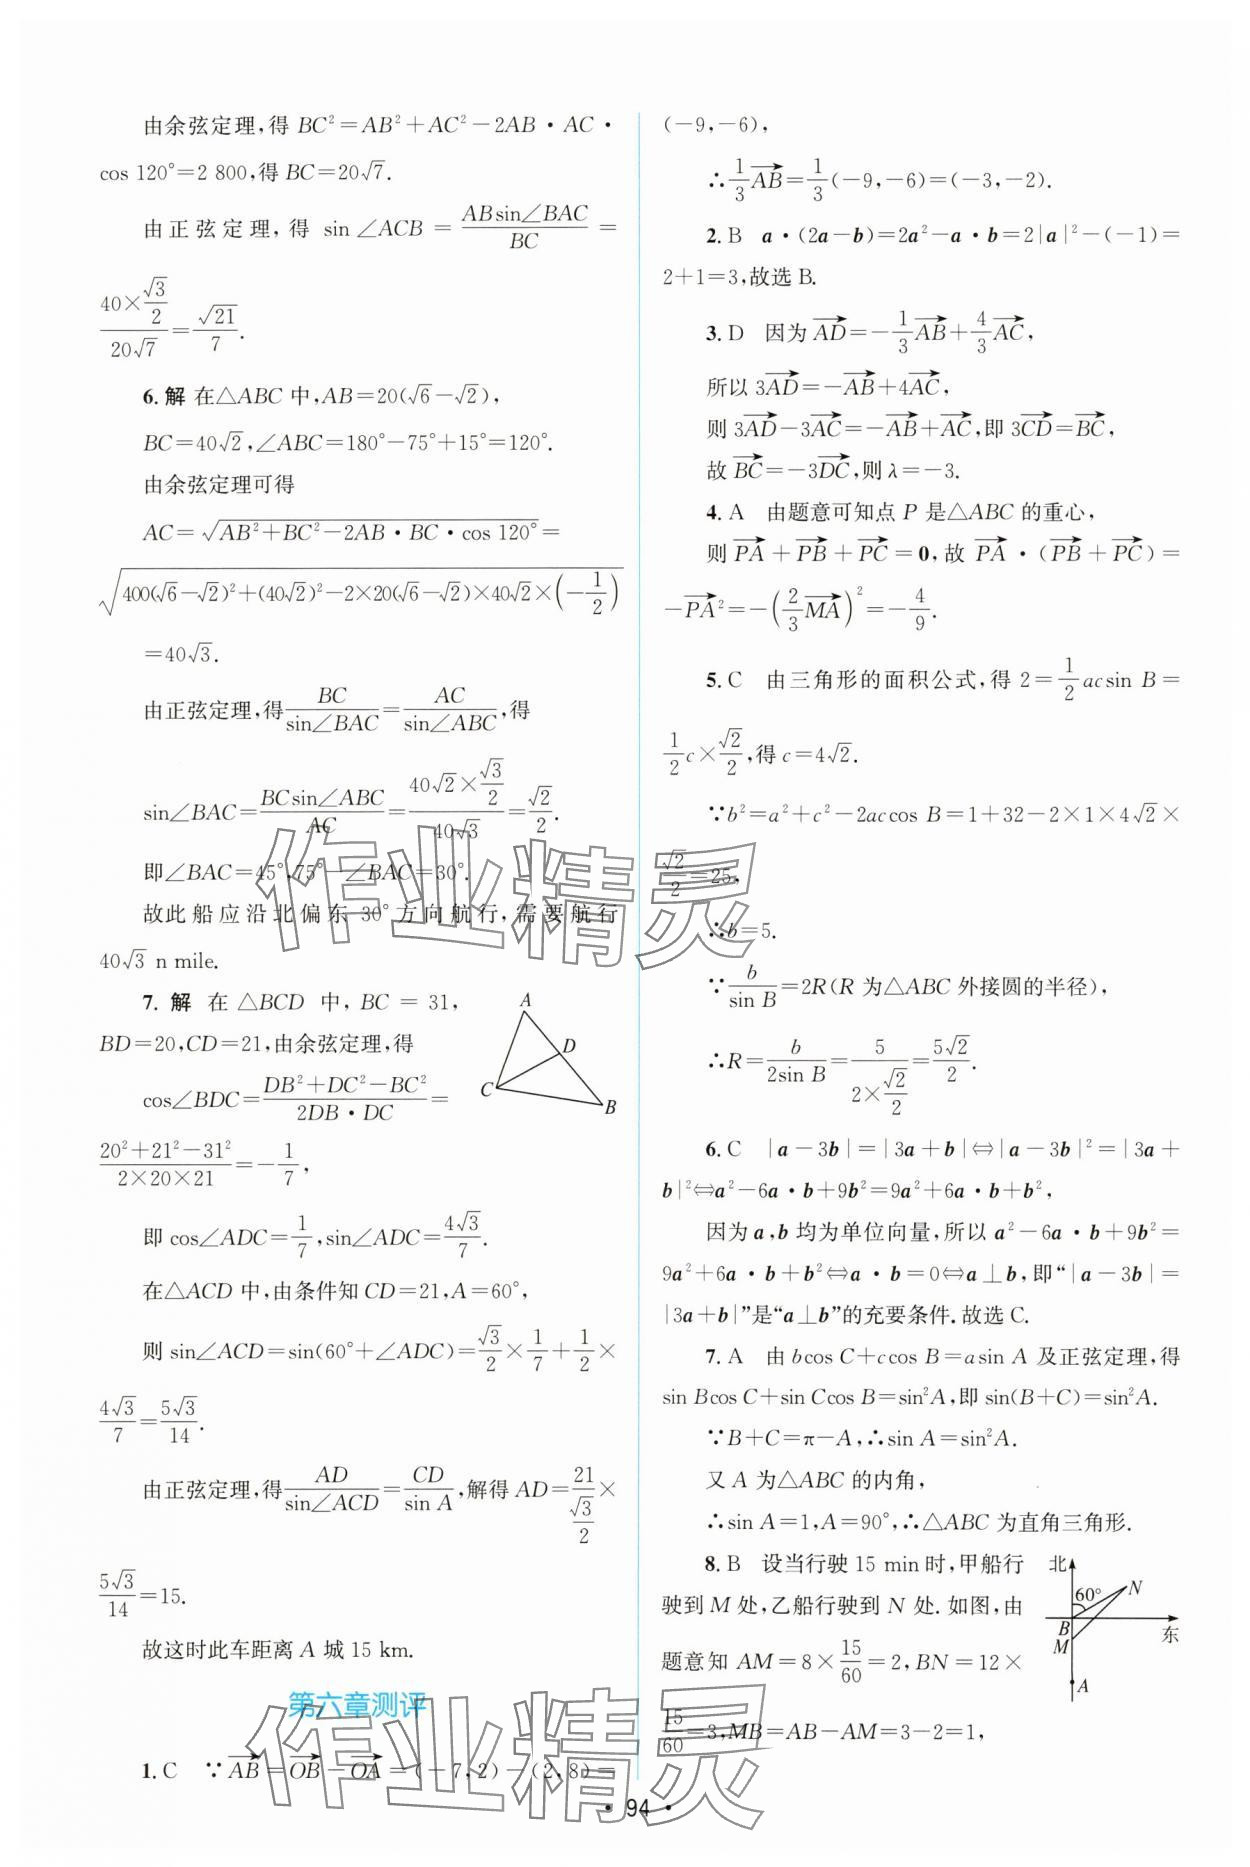 由余弦定理,得 BC²=AB²+AC²-2AB·AC·
cos 120°=2 800,得 BC=20√7.
由正弦定理,得 sin∠ACB=\frac{ABsin∠BAC}{BC}=
\frac{40×\frac{√3}{2}}{20√7}=\frac{√21}{7}.
6.解 在△ABC 中,AB=20(√6-√2),
BC=40√2,∠ABC=180°-75°+15°=120°.
由余弦定理可得
AC=\sqrt{AB²+BC²-2AB·BC·cos 120°}=
\sqrt{400(√6-√2)²+(40√2)²-2×20(√6-√2)×40√2×(-\frac{1}{2})}
=40√3.
由正弦定理,得\frac{BC}{sin∠BAC}=\frac{AC}{sin∠ABC},得
sin∠BAC=\frac{BCsin∠ABC}{AC}=\frac{40√2×\frac{√3}{2}}{40√3}=\frac{√2}{2}.
即∠BAC=45°,75°-∠BAC=30°.
故此船应沿北偏东 30°方向航行,需要航行
40√3 n mile.
7.解 在△BCD 中,BC=31,
BD=20,CD=21,由余弦定理,得
cos∠BDC=\frac{DB²+DC²-BC²}{2DB·DC}=
\frac{20²+21²-31²}{2×20×21}=-\frac{1}{7},
A
D
C
B
即 cos∠ADC=\frac{1}{7},sin∠ADC=\frac{4√3}{7}.
在△ACD 中,由条件知 CD=21,A=60°,
则 sin∠ACD=sin(60°+∠ADC)=\frac{√3}{2}×\frac{1}{7}+\frac{1}{2}×
\frac{4√3}{7}=\frac{5√3}{14}.
由正弦定理,得\frac{AD}{sin∠ACD}=\frac{CD}{sin A},解得 AD=\frac{21}{\frac{√3}{2}}×
\frac{5√3}{14}=15.
故这时此车距离 A 城 15 km.
第六章测评
1.C ∵\overrightarrow{AB}=\overrightarrow{OB}-\overrightarrow{OA}=(-7,2)-(2,8)=
(-9,-6),
∴\frac{1}{3}\overrightarrow{AB}=\frac{1}{3}(-9,-6)=(-3,-2).
2.B a·(2a-b)=2a²-a·b=2|a|²-(-1)=
2+1=3,故选 B.
3.D 因为\overrightarrow{AD}=-\frac{1}{3}\overrightarrow{AB}+\frac{4}{3}\overrightarrow{AC},
所以 3\overrightarrow{AD}=-\overrightarrow{AB}+4\overrightarrow{AC},
则 3\overrightarrow{AD}-3\overrightarrow{AC}=-\overrightarrow{AB}+\overrightarrow{AC},即 3\overrightarrow{CD}=\overrightarrow{BC},
故\overrightarrow{BC}=-3\overrightarrow{DC},则 λ=-3.
4.A 由题意可知点 P 是△ABC 的重心,
则\overrightarrow{PA}+\overrightarrow{PB}+\overrightarrow{PC}=0,故 \overrightarrow{PA}·(\overrightarrow{PB}+\overrightarrow{PC})=
-\overrightarrow{PA}²=-(\frac{2}{3}\overrightarrow{MA})²=-\frac{4}{9}.
5.C 由三角形的面积公式,得 2=\frac{1}{2}acsin B=
\frac{1}{2}c×\frac{√2}{2},得 c=4√2.
∵b²=a²+c²-2accos B=1+32-2×1×4√2×
\frac{√2}{2}=25,
∴b=5.
∵\frac{b}{sin B}=2R(R 为△ABC 外接圆的半径),
∴R=\frac{b}{2sin B}=\frac{5}{2×\frac{√2}{2}}=\frac{5√2}{2}.
6.C |a-3b|=|3a+b|⇔|a-3b|²=|3a+
b|²⇔a²-6a·b+9b²=9a²+6a·b+b²,
因为 a,b 均为单位向量,所以 a²-6a·b+9b²=
9a²+6a·b+b²⇔a·b=0⇔a⊥b,即“|a-3b|=
|3a+b|”是“a⊥b”的充要条件.故选 C.
7.A 由 bcos C+ccos B=asin A 及正弦定理,得
sin Bcos C+sin Ccos B=sin²A,即 sin(B+C)=sin²A.
∵B+C=π-A,∴sin A=sin²A.
又 A 为△ABC 的内角,
∴sin A=1,A=90°,∴△ABC 为直角三角形.
8.B 设当行驶 15 min 时,甲船行
驶到 M 处,乙船行驶到 N 处.如图,由
题意知 AM=8×\frac{15}{60}=2,BN=12×
\frac{15}{60}=3,MB=AB-AM=3-2=1,
北
60°
N
B
东
M
A
·94·
作业精灵
作业精灵